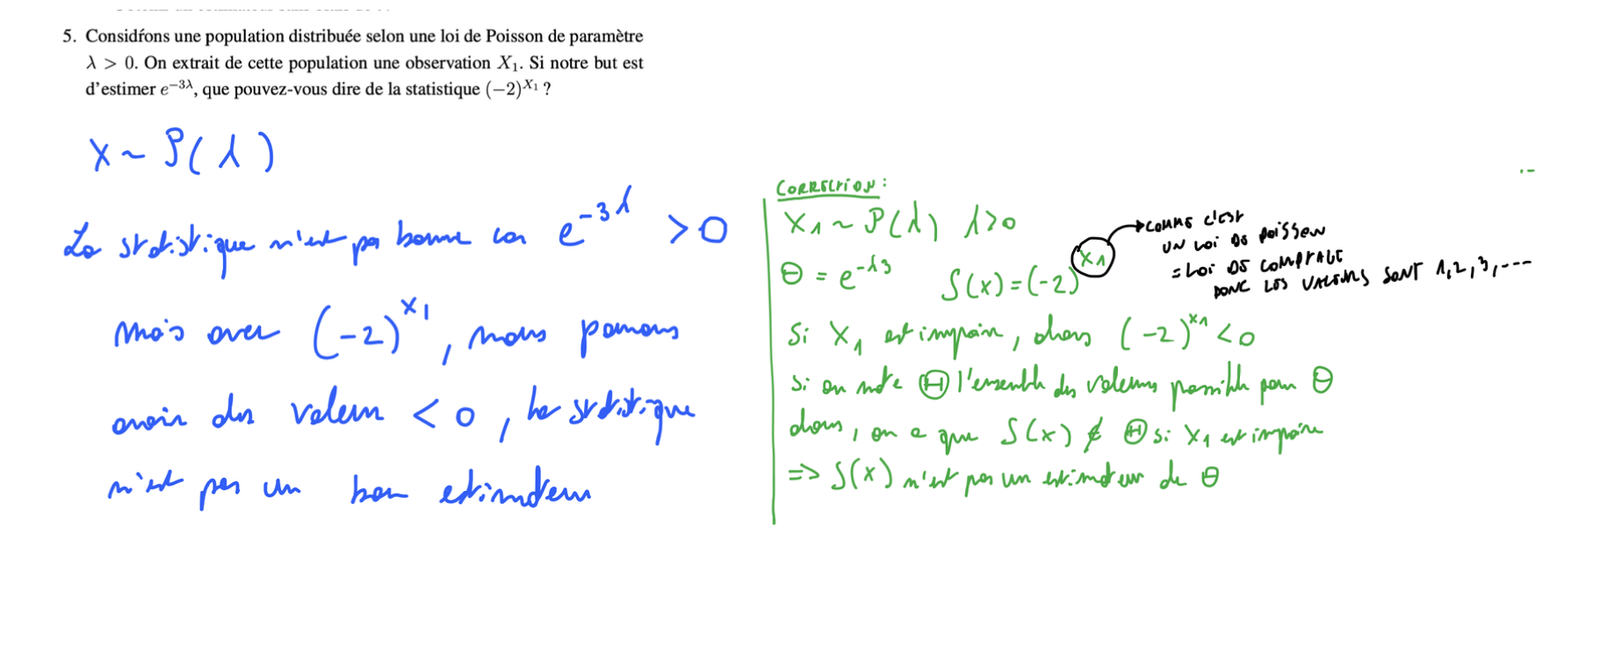 5. Considŕons une population distribuée selon une loi de Poisson de paramètre
λ > 0. On extrait de cette population une observation X₁. Si notre but est
d'estimer e^{-3λ}, que pouvez-vous dire de la statistique (−2)^{X₁} ?
X ~ P(λ)
La statistique n'est pas bonne car e^{-3λ} > 0
mais avec (-2)^{X₁}, nous pouvons
avoir des valeurs < 0, la statistique
n'est pas un bon estimateur
CORRECTION :
X₁ ~ P(λ) λ>0
θ = e^{-λ3} S(x) = (-2)^{X₁}
COMME C'EST
UN LOI DE POISSON
= LOI DE COMPTAGE
DONC LES VALEURS SONT 1,2,3,---
Si X₁ est impair, alors (-2)^{X₁} < 0
si on note Θ l'ensemble des valeurs possible pour θ
alors, on a que S(x) ∉ Θ si X₁ est impaire
=> S(x) n'est pas un estimateur de θ